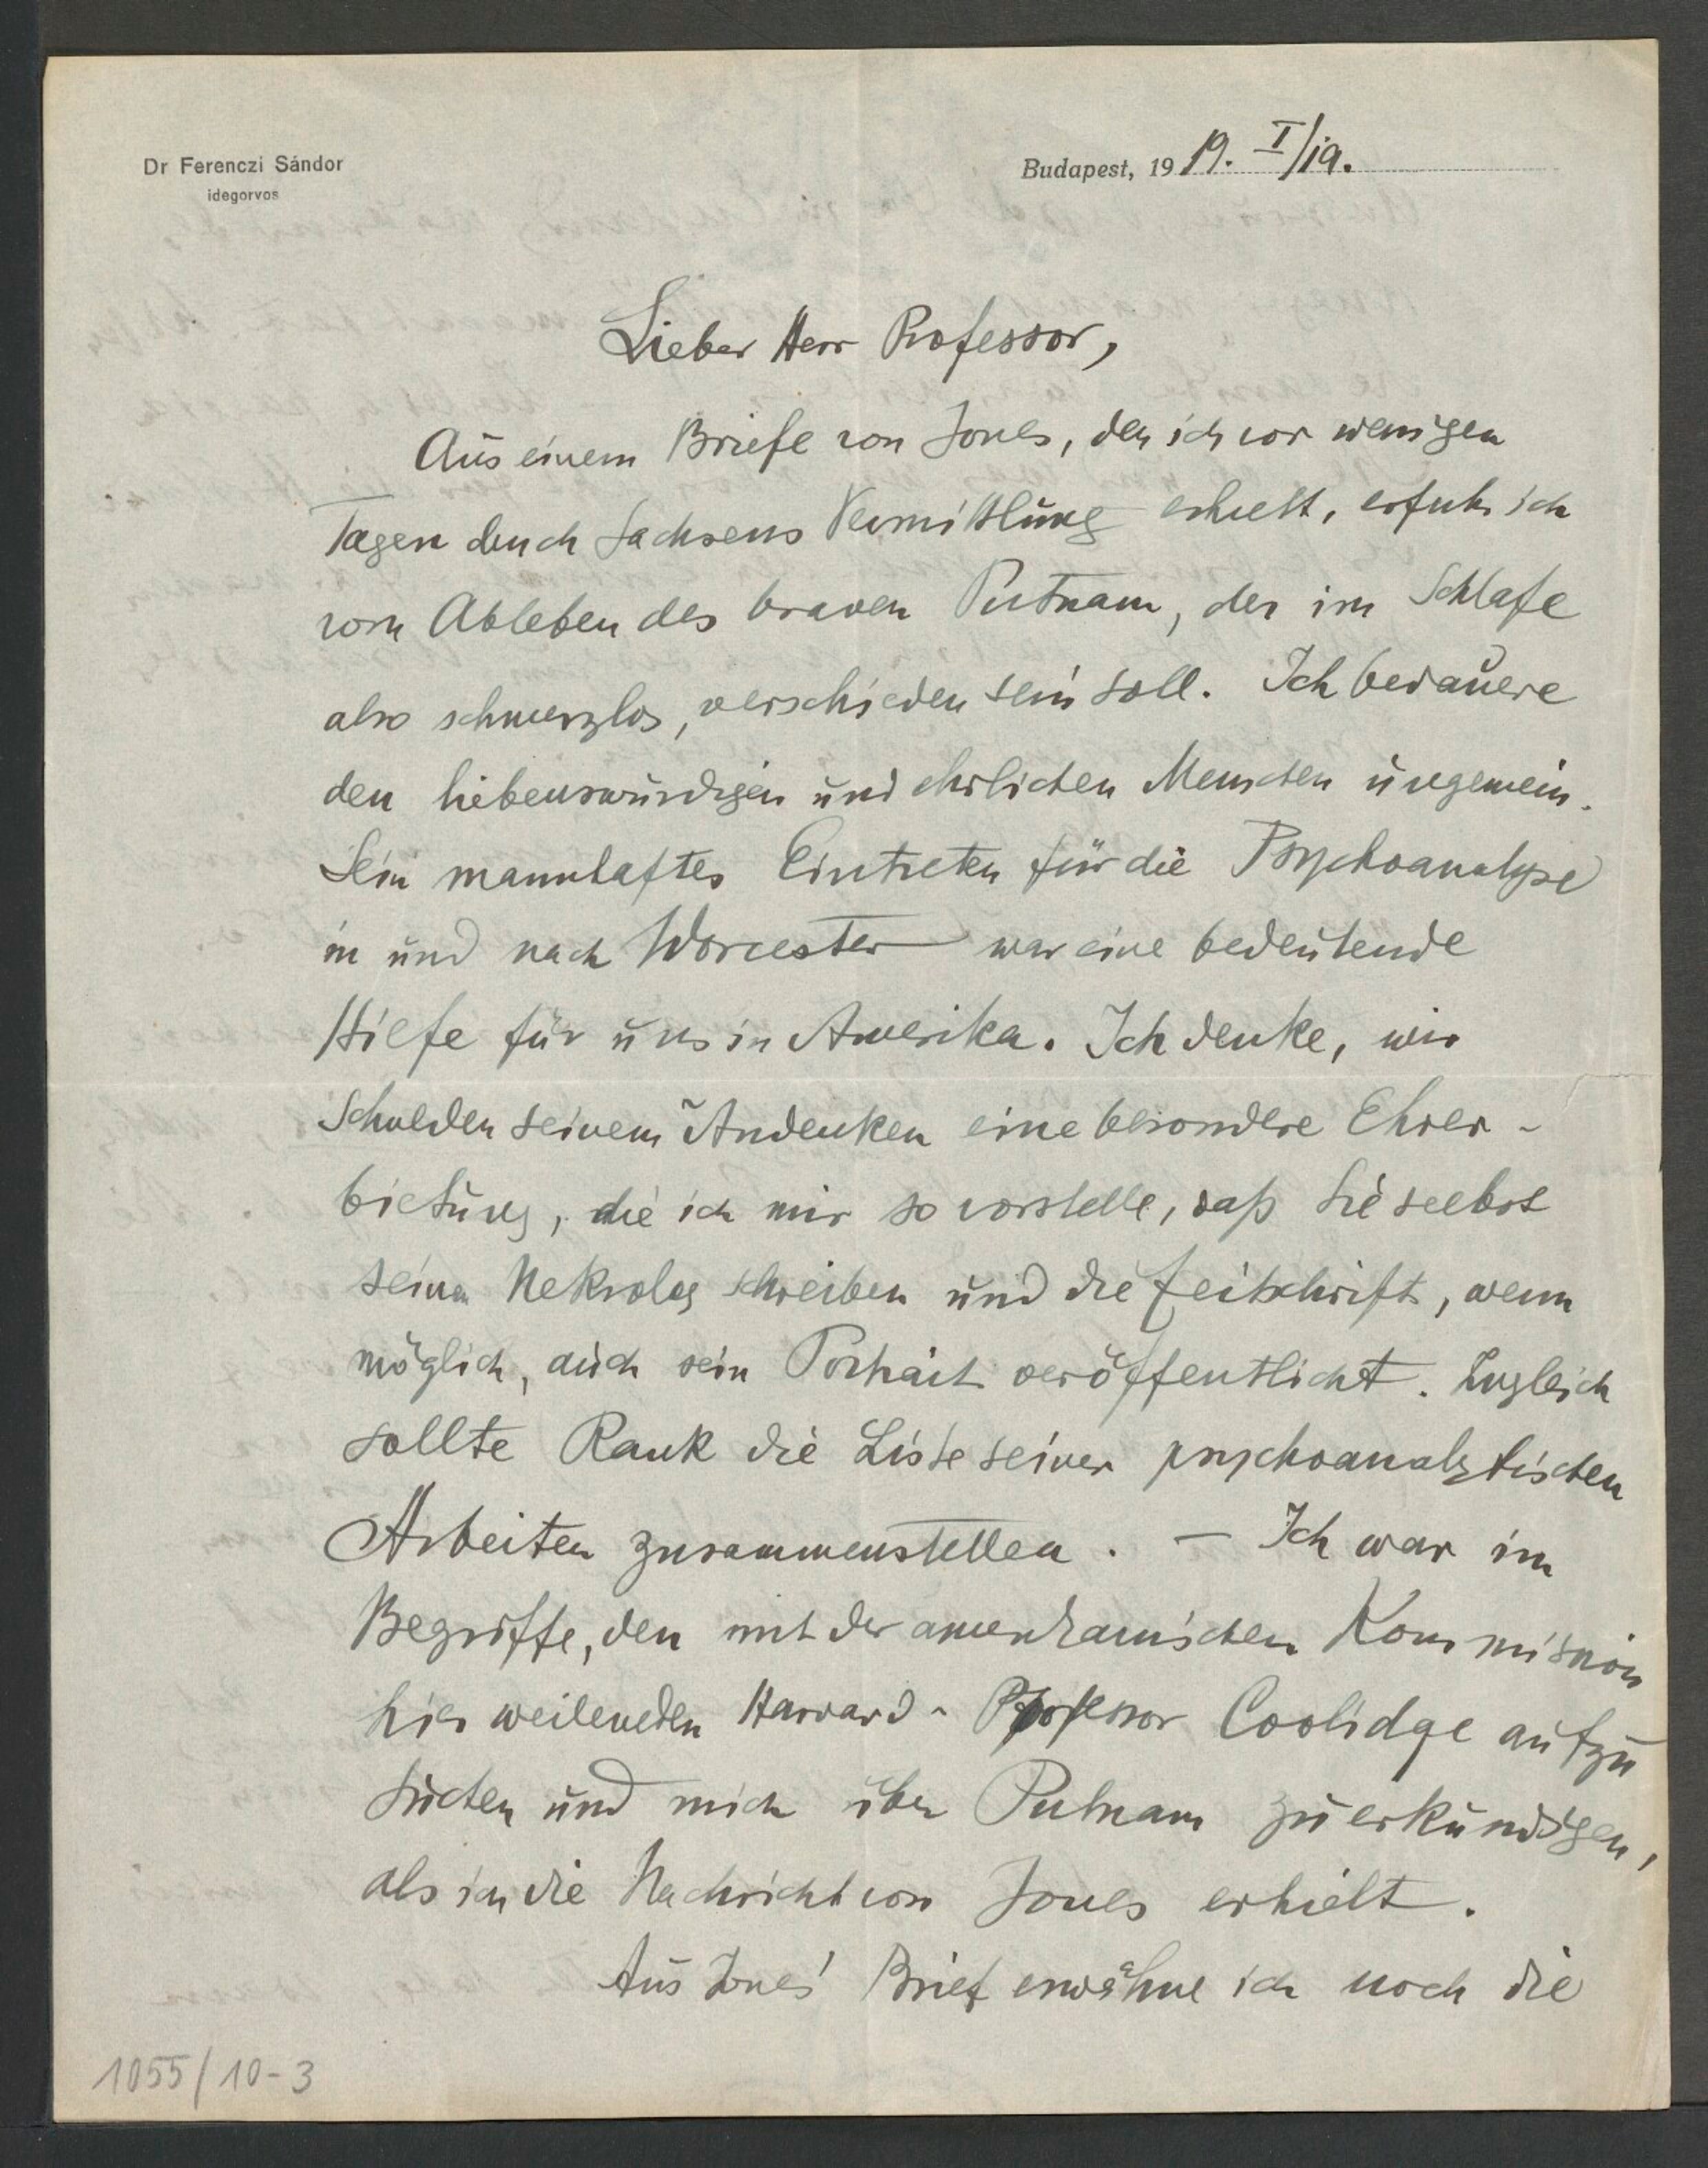 Dr Ferenczi Sándor
idegorvos
Budapest, 19 19. I/19.
Lieber Herr Professor,
Aus einem Briefe von Jones, den ich vor wenigen
Tagen durch Sachsens Vermittlung erhielt, erfuhr ich
vom Ableben des braven Putnam, der im Schlafe
also schmerzlos, verschieden sein soll. Ich bedauere
den liebenswürdigen und ehrlichen Menschen ungemein.
Sein mannhaftes Eintreten für die Psychoanalyse
in und nach Worcester war eine bedeutende
Hilfe für uns in Amerika. Ich denke, wir
schulden seinem Andenken eine besondere Ehrer-
bietung, die ich mir so vorstelle, daß Sie selbst
seinen Nekrolog schreiben und die Zeitschrift, wenn
möglich, auch sein Porträit veröffentlicht. Zugleich
sollte Rank die Liste seiner psychoanalytischen
Arbeiten zusammenstellen. – Ich war im
Begriffe, den mit der amerikanischen Kommission
hier weilenden Harvard-Professor Coolidge aufzu
suchen und mich über Putnam zu erkundigen,
als ich die Nachricht von Jones erhielt.
Aus Jones' Brief erwähne ich noch die
1055/10-3